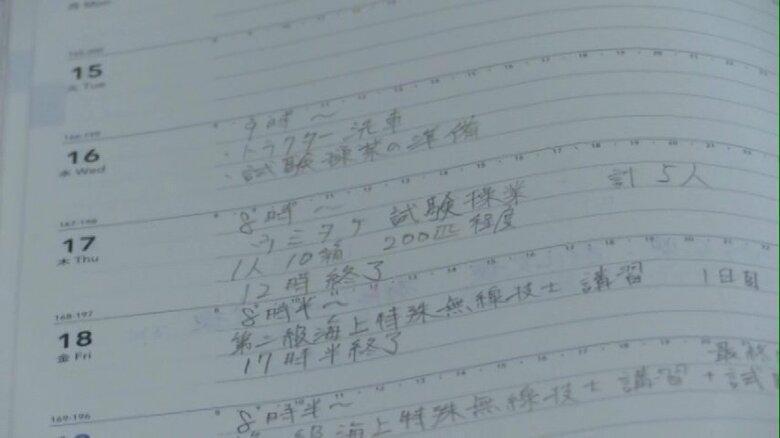 月 Mon
165-200
15
火 Tue
9時～
・トラクター洗車
166-199
16
水 Wed
・試験操業の準備
8時～
167-198
17
木 Thu
ウミタケ 試験操業 計5人
1人10箱 200匹程度
12時終了
168-197
18
金 Fri
8時半～
第二級海上特殊無線技士 講習 1日目
17時半終了
169-196
8時半～ 最終
級海上特殊無線技士 講習+試